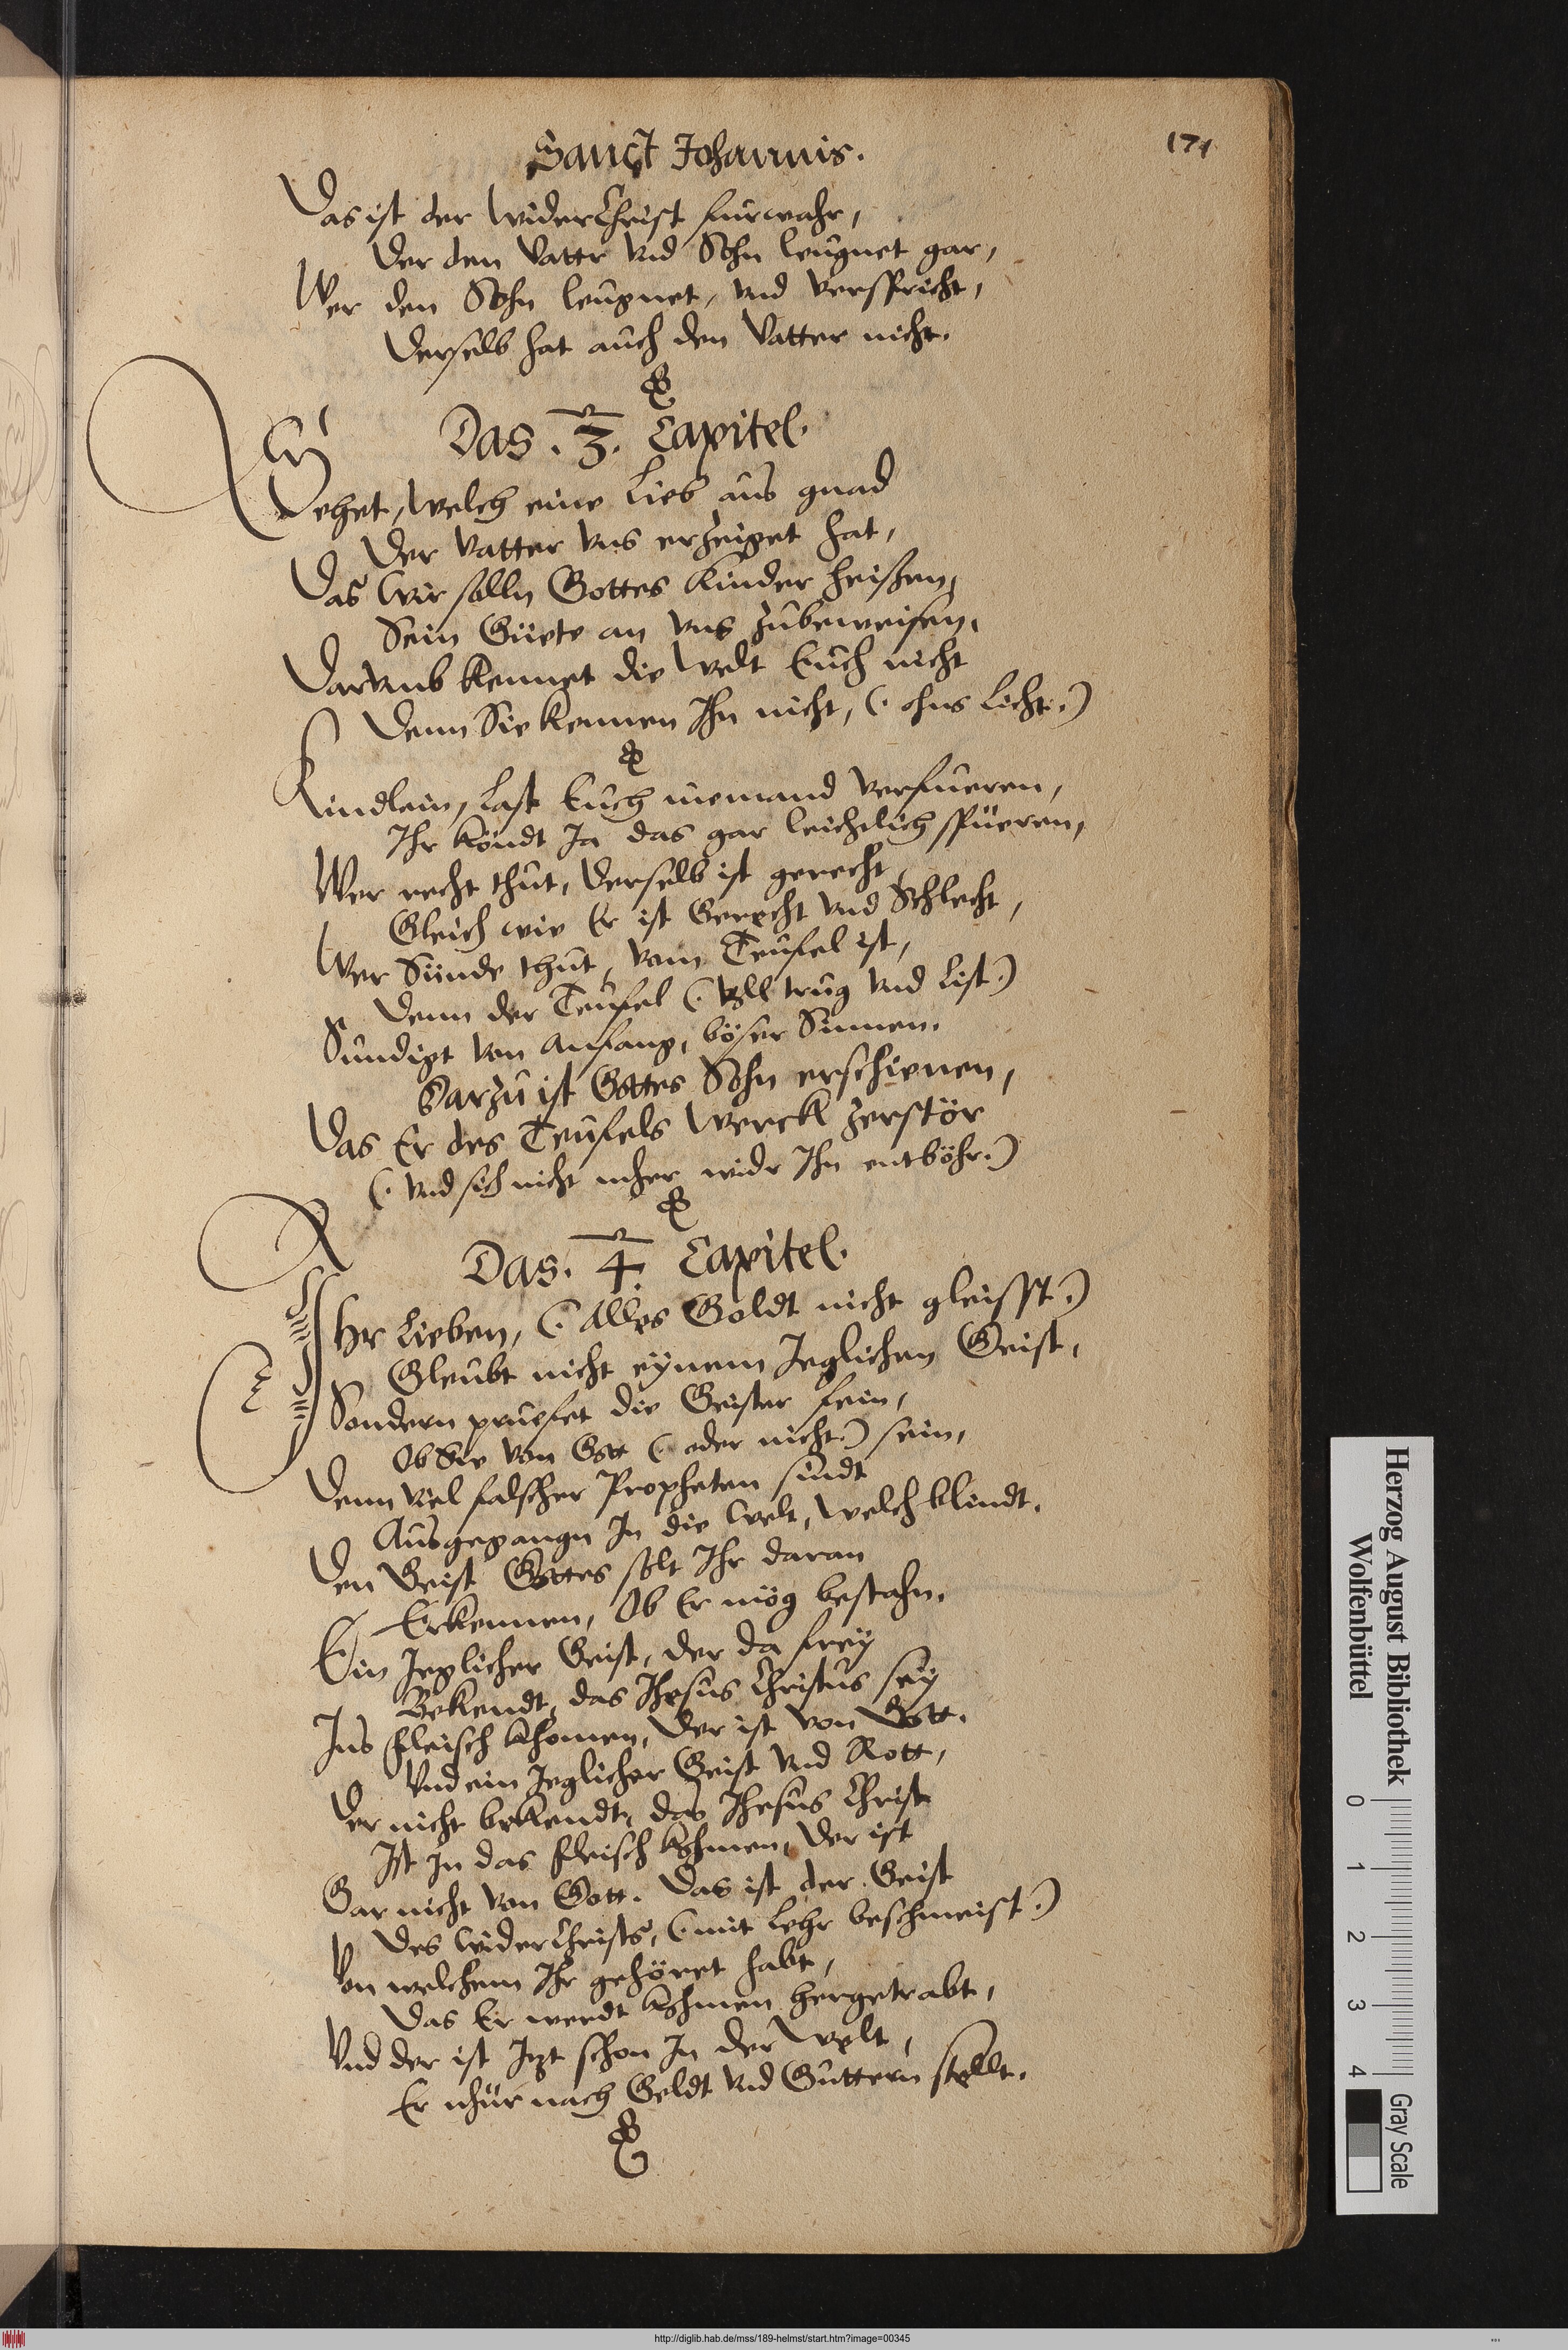 Sanct Johannis.
171
Das ist der WiderChrist fürwahr,
Der den Vattr vnd Sohn leugnet gar,
Wer den Sohn leugnet, vnd verspricht,
Derselb hat auch den Vatter nicht.
Das .3. Capitel.
Sehet, welch eine Lieb aus gnad
Der Vatter vns erzeiget hat,
Das wir solln Gottes Kinder heißen,
Sein Güete an vns zubeweisen,
Darumb kennet die Welt Euch nicht
Denn Sie kennen Ihn nicht, (. ohns Licht.)
Kindlein, last Euch niemand verfueren,
Ihr köndt Ja das gar leichtlich spüeren,
Wer recht thut, derselb ist gerecht,
Gleich wie Er ist Gerecht vnd Schlecht,
Wer Sünde thut, vom Teufel ist,
Denn der Teufel (. voll trug vnd List.)
Sündigt von Anfang, böser Sinnen.
Darzu ist Gottes Sohn erschienen,
Das Er des Teufels Werckh zerstör
(. vnd sich nicht mher widr Ihn entböhr.)
Das .4. Capitel.
Ihr Lieben, (. Alles Goldt nicht gleisst.)
Gleubt nicht eynem Jeglichen Geist,
Sondern pruefet die Geister fein,
Ob Sie von Gott (. oder nicht.) sein,
Denn viel falscher Propheten sindt
Ausgegangn In die Welt, welch blindt.
Den Geist Gottes solt Ihr daran
Erkennen, Ob Er mög bestahn.
Ein Jeglicher Geist, der da frey
Bekendt, das Jhesus Christus sey
Ins fleisch khomen, der ist von Gott.
Vnd ein Jeglicher Geist vnd Rott,
Der nicht bekendt, das Jhesus Christ
Ist In das fleisch khomen, der ist
Gar nicht von Gott. Das ist der Geist
Des WiderChrists, (. mit Lehr beschmeist.)
Von welchem Ihr gehöret habt,
Das Er werdt khomen hergetrabt,
Vnd der ist Jtzt schon In der Welt,
Er nhur nach Geldt vnd Guttern stellt.
Herzog August Bibliothek
Wolfenbüttel
0 1 2 3 4
Gray Scale
http://diglib.hab.de/mss/189-helmst/start.htm?image=00345